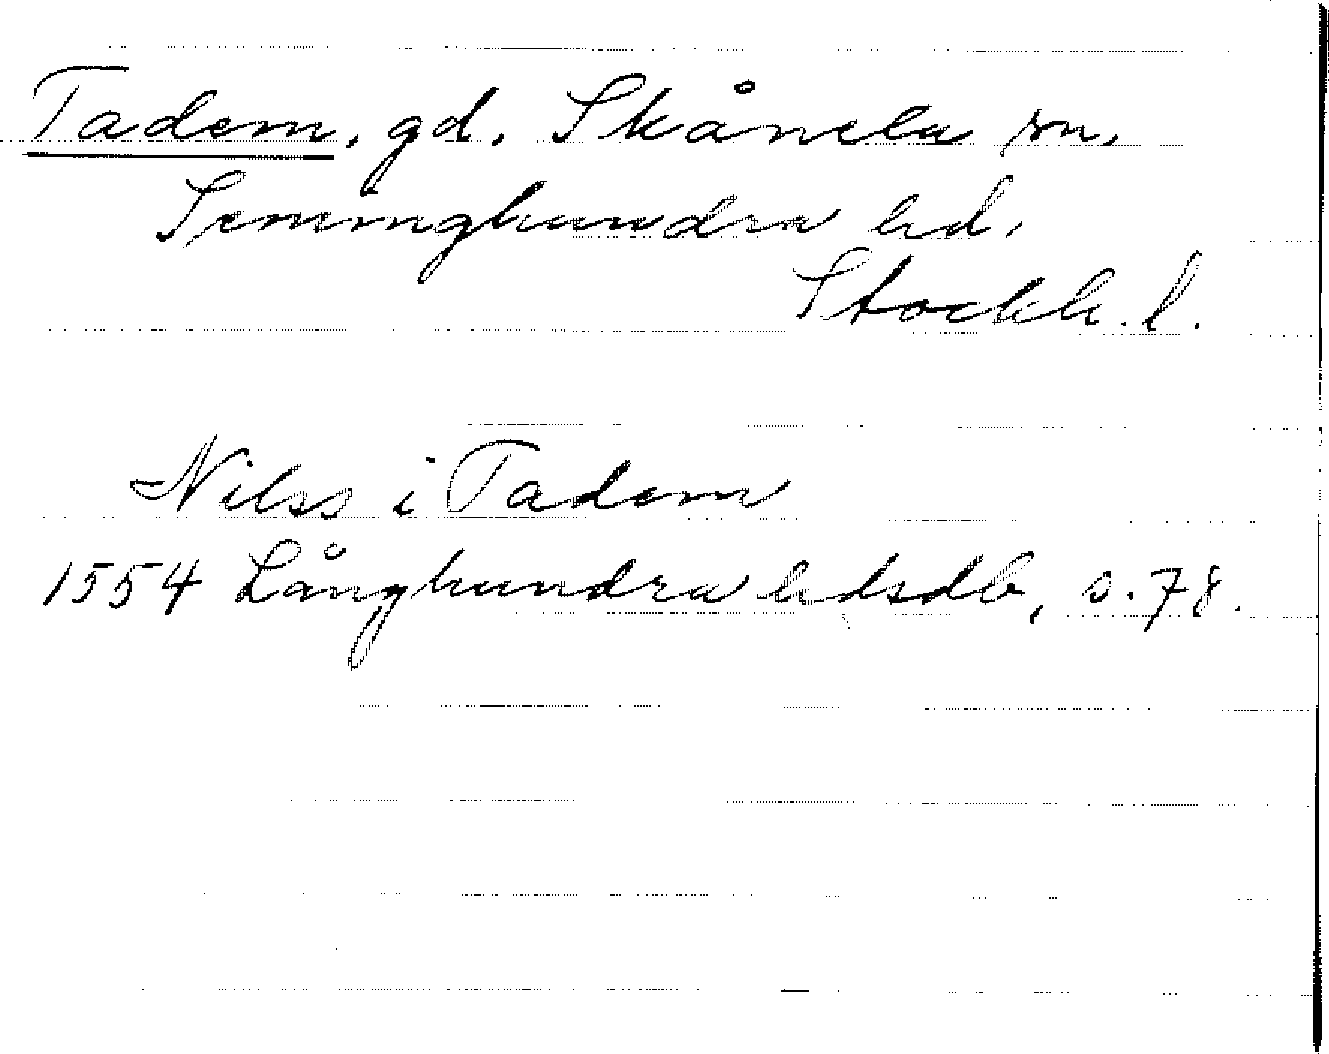 Tadem, gd. Skånela sn,
Seminghundra hd.
Stockh. l.
Nilss i Tadem
1554 Långhundra hdsdb, s. 78.